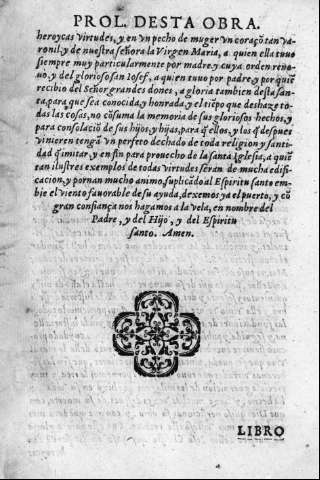 PROL. DESTA OBRA.
heroycas virtudes, y en vn pecho de muger vn coraçõ tan va-
ronil, y de nuestra señora la Virgen Maria, a quien ella tuuo
siempre muy particularmente por madre, y cuya orden reno-
uo, y del glorioso san Iosef, a quien tuuo por padre, y por quiẽ
recibio del Señor grandes dones, a gloria tambien desta san-
ta, para que sea conocida, y honrada, y el tiẽpo que deshaze to-
das las cosas, no cõsuma la memoria de sus gloriosos hechos, y
para consolaciõ de sus hijos, y hijas, para q̃ ellos, y los q̃ despues
vinieren tengã vn perfeto dechado de toda religion y santi-
dad q̃ imitar, y en fin para prouecho de la santa Iglesia, a quiẽ
tan ilustres exemplos de todas virtudes seran de mucha edifi-
cacion, y pornan mucho animo, suplicãdo al Espiritu santo em-
bie el viento fauorable de su ayuda, dexemos ya el puerto, y cõ
gran confiança nos hagamos a la vela, en nombre del
Padre, y del Hijo, y del Espiritu
santo. Amen.
LIBRO